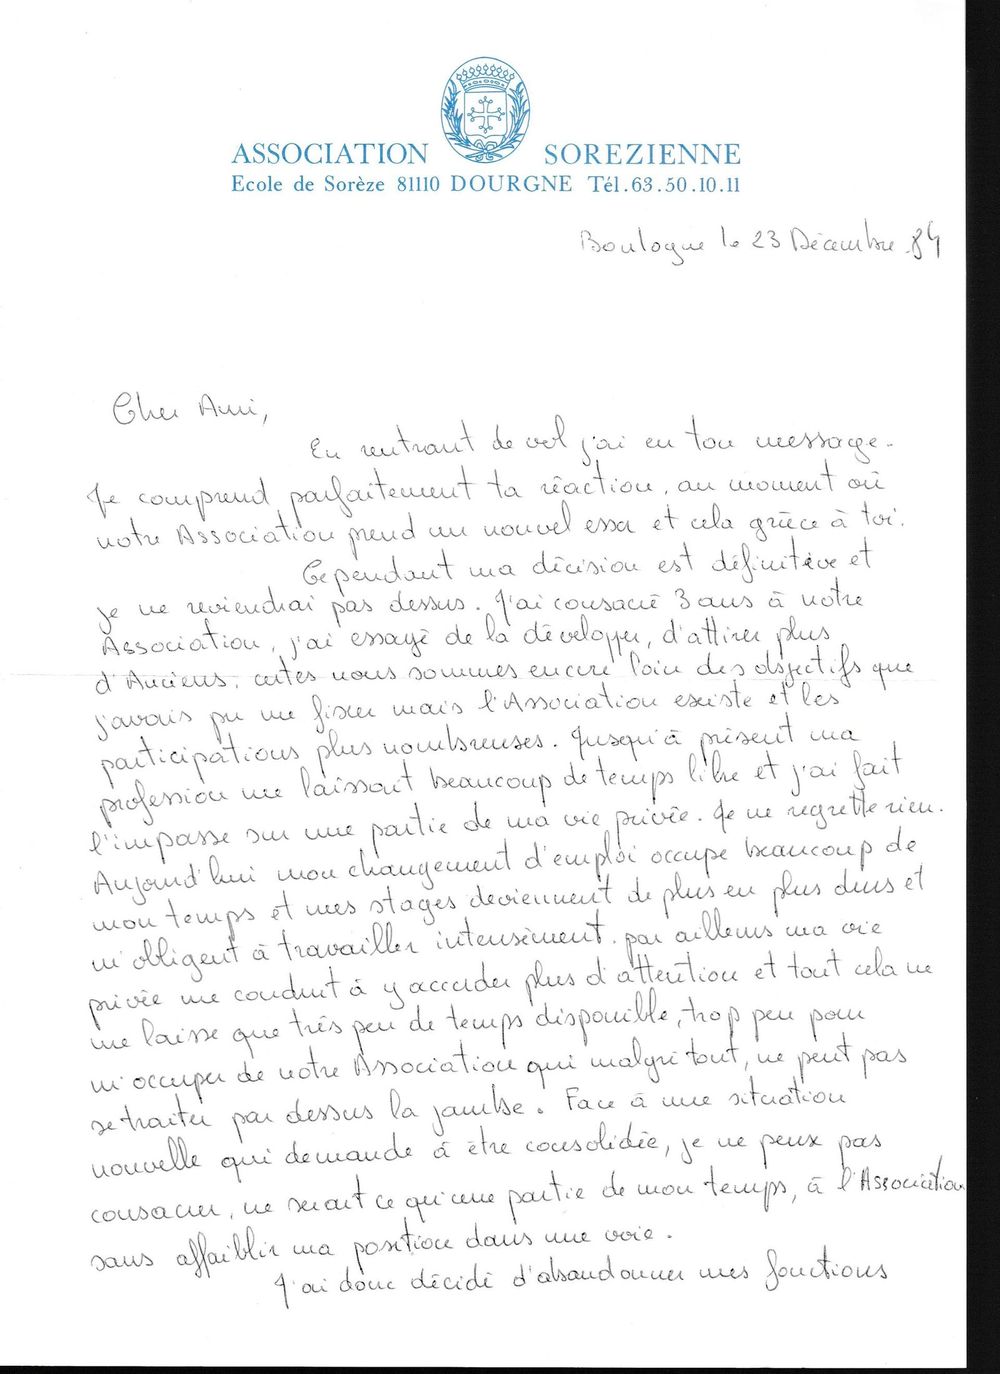 ASSOCIATION SOREZIENNE
Ecole de Sorèze 81110 DOURGNE Tél.63.50.10.11
Boulogne le 23 Décembre 84
Cher Ami,
En rentrant de vol j'ai eu ton message.
Je comprend parfaitement ta réaction, au moment où
notre Association prend un nouvel essor et cela grâce à toi.
Cependant ma décision est définitive et
je ne reviendrai pas dessus. J'ai consacré 3 ans à notre
Association, j'ai essayé de la développer, d'attirer plus
d'Anciens, certes nous sommes encore loin des objectifs que
j'avais pu me fixer mais l'Association existe et les
participations plus nombreuses. Jusqu'à présent ma
profession me laissait beaucoup de temps libre et j'ai fait
l'impasse sur une partie de ma vie privée. Je ne regrette rien.
Aujourd'hui mon changement d'emploi occupe beaucoup de
mon temps et mes stages deviennent de plus en plus durs et
m'obligent à travailler intensément. par ailleurs ma vie
privée me conduit à y accorder plus d'attention et tout cela ne
me laisse que très peu de temps disponible, trop peu pour
m'occuper de notre Association qui malgré tout, ne peut pas
se traiter par dessus la jambe. Face à une situation
nouvelle qui demande à être consolidée, je ne peux pas
consacrer, ne serait ce qu'une partie de mon temps, à l'Association
sans affaiblir ma position dans une voie.
J'ai donc décidé d'abandonner mes fonctions